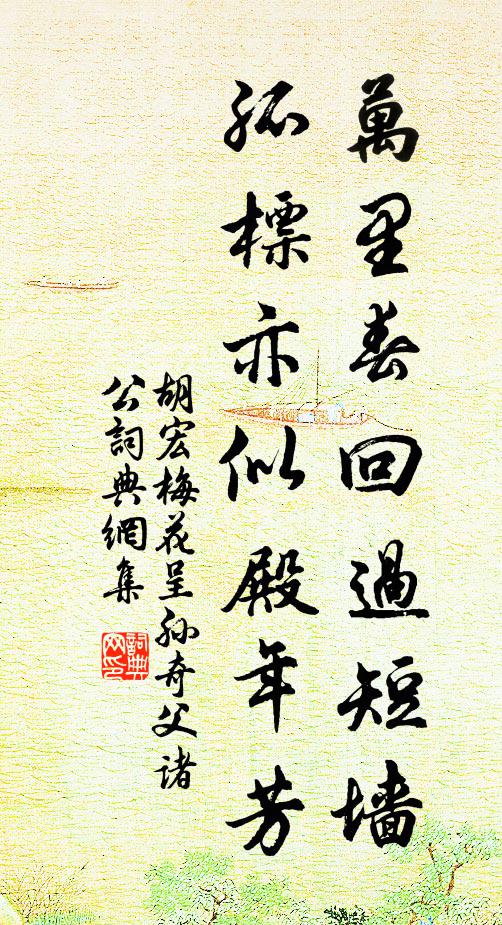 萬里春回過短墻
孤標亦似殿年芳
胡宏梅花呈孙奇父诸
公詞典網集
詞典网印